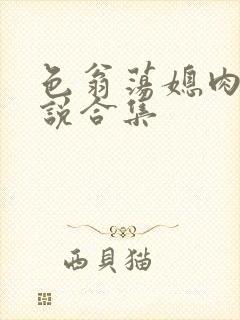 色翁荡媳肉
说合集
西貝猫